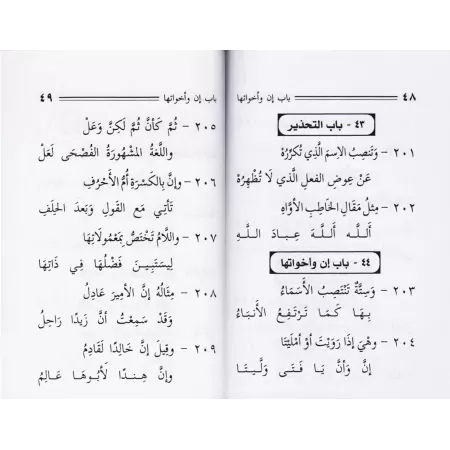 ٤٨ باب إن وأخواتها
٤٣ - باب التحذير
٢٠١ - وَتَنصِبُ الاِسمَ الَّذِي تُكَرِّرُهْ
عَنْ عِوَضِ الفعلِ الَّذي لَا تُظْهِرُهْ
٢٠٢ - مِثلُ مَقَالِ الخَاطِبِ الأَوَّاهِ
أَللهَ أَللهَ عِبَادَ اللهِ
٤٤ - باب إن وأخواتها
٢٠٣ - وَسِتَّةٌ تَنْتَصِبُ الأَسْمَاءُ
بِهَا كَمَا تَرْتَفِعُ الأَنْبَاءُ
٢٠٤ - وَهْيَ إِذَا رَوَيْتَ أوْ أَمْلَيْتَا
إِنَّ وَأَنَّ يَا فَتَى وَلَيْتَا
باب إن وأخواتها ٤٩
٢٠٥ - ثُمَّ كَأَنَّ ثُمَّ لَكِنَّ وَعَلْ
واللُّغَةُ المَشْهُورَةُ الفُصْحَى لَعَلْ
٢٠٦ - وإنَّ بِالكَسْرَةِ أُمُّ الأَحْرُفِ
تَأتِي مَعَ القَولِ وَبَعدَ الحَلِفِ
٢٠٧ - واللَّامُ تَخْتَصُّ بِمَعْمُولَاتِهَا
لِيَسْتَبِينَ فَضْلُهَا فِي ذَاتِهَا
٢٠٨ - مِثَالُهُ إنَّ الأَمِيرَ عَادِلُ
وَقَدْ سَمِعْتُ أَنَّ زَيدًا رَاحِلُ
٢٠٩ - وَقِيلَ إنَّ خَالِدًا لَقَادِمُ
وإنَّ هِنْدًا لأَبُوهَا عَالِمُ